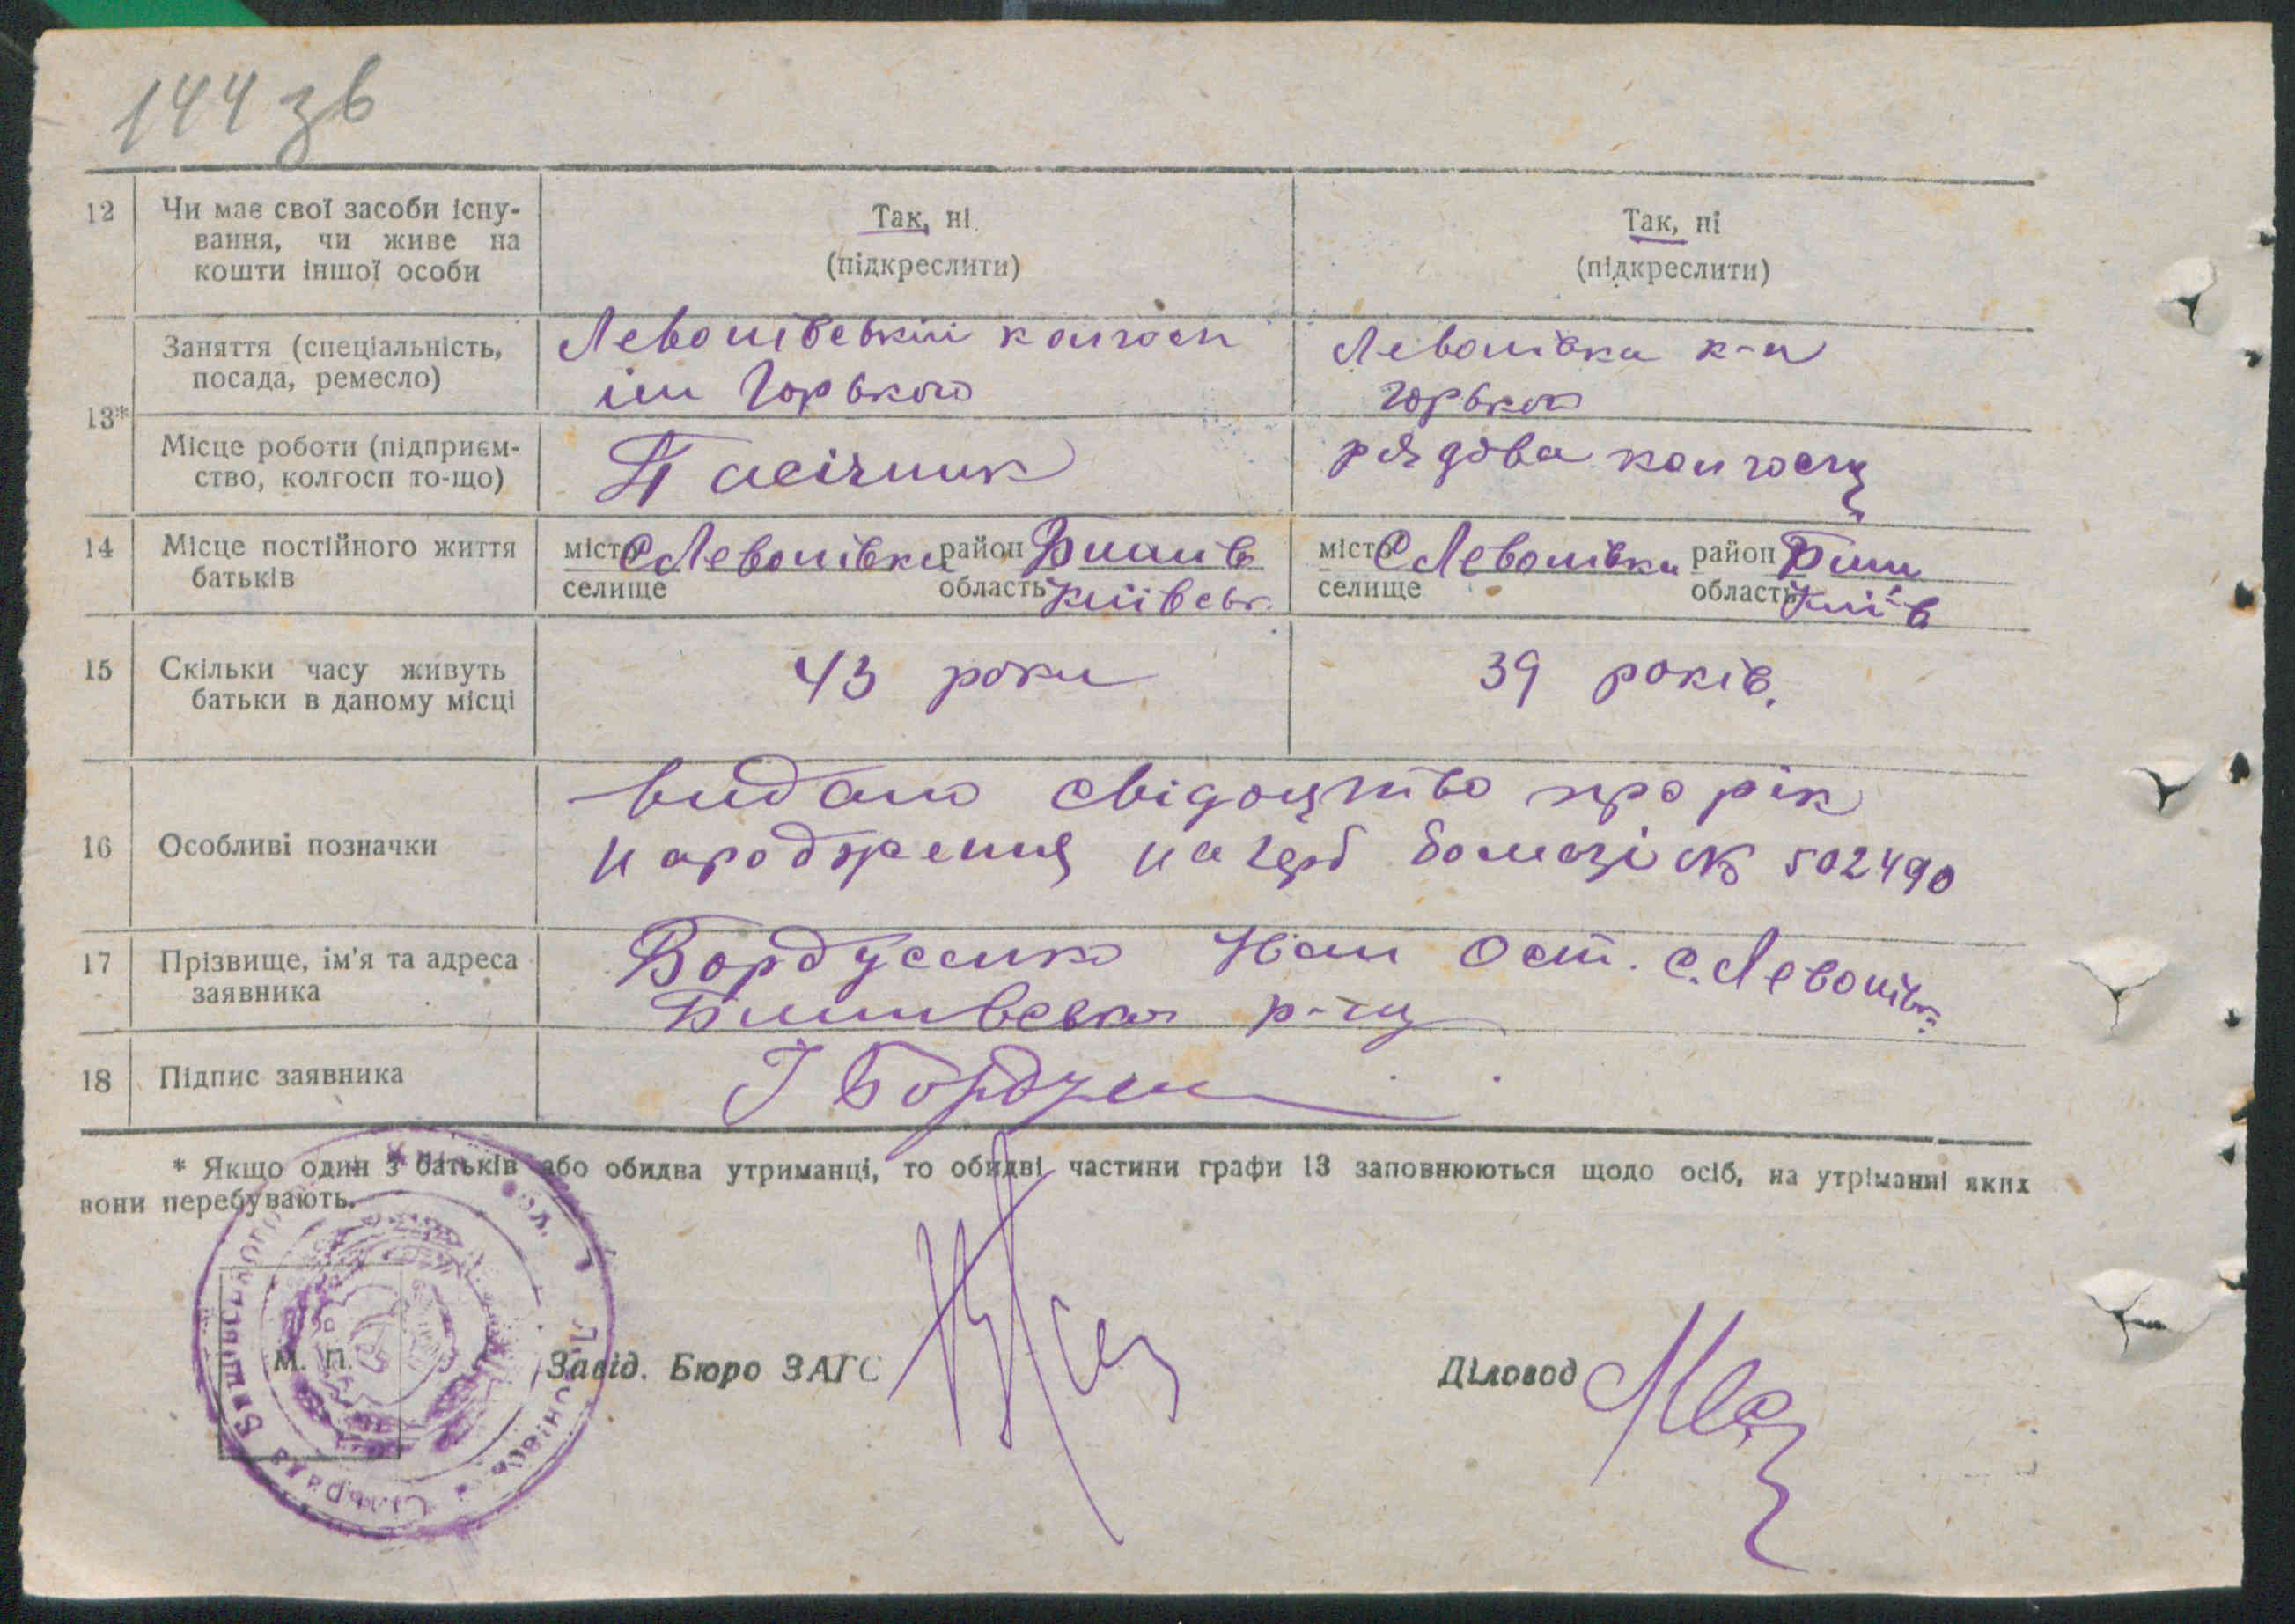 144 зв
12 Чи має свої засоби існу-
вання, чи живе на
кошти іншої особи
Так, ні
(підкреслити)
Так, ні
(підкреслити)
13*
Заняття (спеціальність,
посада, ремесло)
Левонівський колгосп
ім Горького
Левонівка к-п
Горького
Місце роботи (підприєм-
ство, колгосп то-що)
Пасічник
рядова колгоспу
14 Місце постійного життя
батьків
місто С Левонівка район Бишів
селище область Київськ.
місто С Левонівка район Биш
селище область Київ
15 Скільки часу живуть
батьки в даному місці
43 роки
39 років.
16 Особливі позначки
видано свідоцтво про рік
народження на герб бомазі № 502490
17 Прізвище, ім'я та адреса
заявника
Бордусенко Іван Ост. с. Левонівк
Бишивського р-ну
18 Підпис заявника
І Бордусен
* Якщо один з батьків або обидва утриманці, то обидві частини графи 13 заповнюються щодо осіб, на утріманні яких
вони перебувають.
М. П.
Завід. Бюро ЗАГС
Діловод
Сільрада